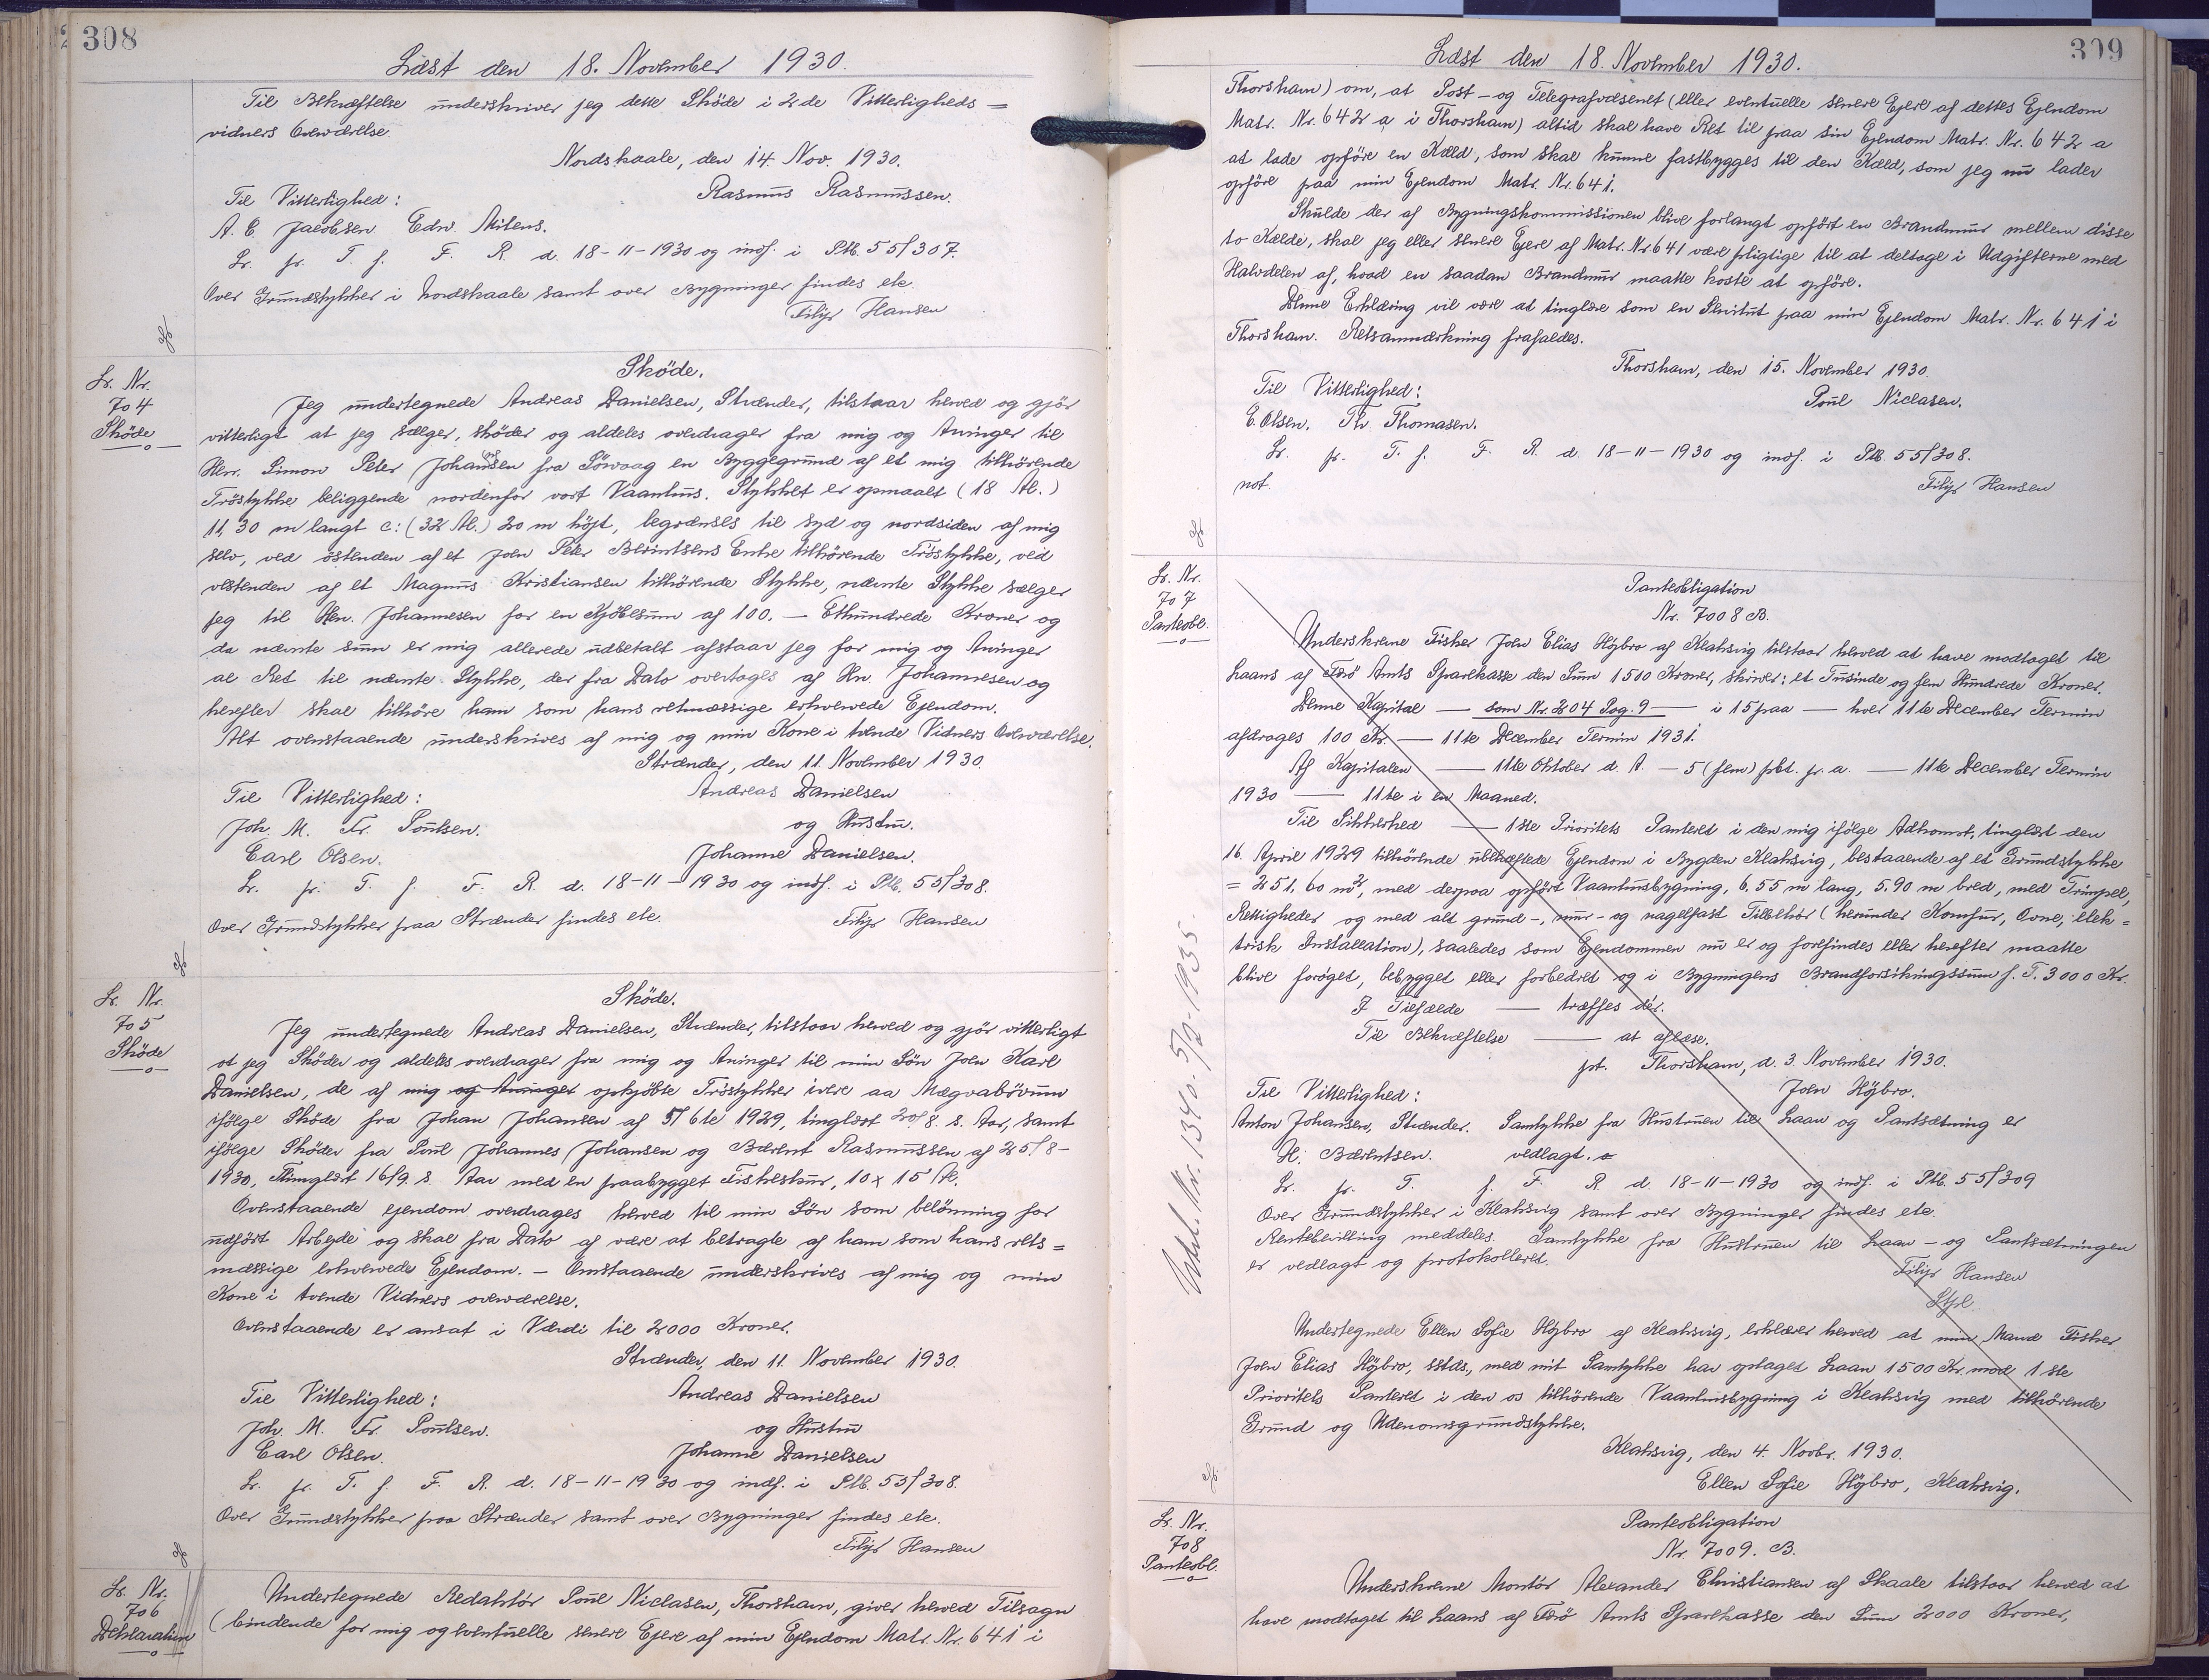 308
Læst den 18. November 1930.
Til Bekræftelse underskriver jeg dette Skøde i 2 de Vitterligheds=
vidners Overværelse.
Nordskaale, den 14. Nov. 1930.
Til Vitterlighed:
Rasmus Rasmussen.
A. C. Jacobsen. Edw. Mitens.
Lr. pr. T. f. F. R. d. 18-11-1930 og indf. i Ptb. 55/307.
Over Grundstykker i Nordskaale samt over Bygninger findes etc.
Filip Hansen
Lr. Nr.
704
Skøde
Skøde.
Jeg undertegnede Andreas Danielsen, Strænder, tilstaar herved og gjör
vitterligt at jeg sælger, skøder og aldeles overdrager fra mig og Arvinger til
Herr. Simon Peter Johannesen fra Sörvaag en Byggegrund af et mig tilhørende
Tröstykke beliggende nordenfor vort Vaanhus. Stykket er opmaalt (18 Al.)
11,30 m langt c: (32 Al.) 20 m höjt, begrænses til syd og nordsiden af mig
selv, ved östenden af et Joen Peter Berintsens Enke tilhørende Tröstykke, ved
vestenden af et Magnus Kristiansen tilhørende Stykke, nævnte Stykke sælger
jeg til Hr. Johannesen for en Kjöbesum af 100.- Ethundrede Kroner og
da nævnte sum er mig allerede udbetalt afstaar jeg for mig og Arvinger
al Ret til nævnte Stykke, der fra Dato overtages af Hr. Johannesen og
herefter skal tilhöre ham som hans retmæssige erhvervede Ejendom.
Alt ovenstaaende underskrives af mig og min Kone i tvende Vidners Overværelse.
Strænder, den 11. November 1930.
Til Vitterlighed:
Andreas Danielsen
Joh. M. Fr. Poulsen.
og Hustru.
Carl Olsen.
Johanne Danielsen.
Lr. pr. T. f. F. R. d. 18-11-1930 og indf. i Ptb. 55/308.
Over Grundstykker paa Strænder findes etc.
Filip Hansen
Lr. Nr.
705
Skøde
Skøde.
Jeg undertegnede Andreas Danielsen, Strænder, tilstaar herved og gjör vitterligt
at jeg Skøder og aldeles overdrager fra mig og Arvinger til min Sön Joen Karl
Danielsen, de af mig og Arvinger opkjöbte Tröstykker ivere aa Mægvabövum
ifölge Skøde fra Johan Johansen af 5/6te 1929, tinglæst 20/8. s. Aar, samt
ifölge Skøder fra Poul Johannes Johansen og Bærent Rasmussen af 25/8-
1930, Tinglæst 16/9. s. Aar med en paabygget Fiskeskur, 10 x 15 Al.
Ovenstaaende ejendom overdrages herved til min Sön som belönning for
udfört Arbejde og skal fra Dato af være at betragte af ham som hans rets=
mæssige erhvervede Ejendom. - Omstaaende underskrives af mig og min
Kone i tvende Vidners overværelse.
Ovenstaaende er ansat i Værdi til 2000 Kroner.
Strænder, den 11. November 1930.
Til Vitterlighed:
Andreas Danielsen
Joh. M. Fr. Poulsen.
og Hustru
Carl Olsen.
Johanne Danielsen
Lr. pr. T. f. F. R. d. 18-11-1930 og indf. i Ptb. 55/308.
Over Grundstykker paa Strænder samt over Bygninger findes etc.
Filip Hansen
Lr. Nr.
706
Deklaration
Undertegnede Redaktör Poul Niclasen, Thorshavn, giver herved Tilsagn
(bindende for mig og eventuelle senere Ejere af min Ejendom Matr. Nr. 641 i
309
Læst den 18. November 1930.
Thorshavn) om, at Post- og Telegrafvæsenet (eller eventuelle senere Ejere af dettes Ejendom
Matr. Nr. 642 a i Thorshavn) altid skal have Ret til paa sin Ejendom Matr. Nr. 642 a
at lade opföre en Kæld, som skal kunne fastbygges til den Kæld, som jeg nu lader
opföre paa min Ejendom Matr. Nr. 641.
Skulde der af Bygningskommissionen blive forlangt opfört en Brandmur mellem disse
to Kælde, skal jeg eller senere Ejere af Matr. Nr. 641 være pligtige til at deltage i Udgifterne med
Halvdelen af, hvad en saadan Brandmur maatte koste at opföre.
Denne Erklæring vil være at tinglæse som en Servitut paa min Ejendom Matr. Nr. 641 i
Thorshavn. Retsanmærkning frafaldes.
Thorshavn, den 15. November 1930.
Til Vitterlighed:
Poul Niclasen.
E. Olsen. Th. Thomasen.
Lr. pr. T. f. F. R. d. 18-11-1930 og indf. i Ptb. 55/308.
not.
Filip Hansen
Lr. Nr.
707
Panteobl.
Panteobligation
Nr. 7008 B.
Underskrevne Fisker Joen Elias Höjbro af Klaksvig tilstaar herved at have modtaget til
Laans af Færö Amts Sparekasse den Sum 1500 Kroner, skriver: et Tusinde og fem Hundrede Kroner.
Denne Kapital — som Nr. 204 Pag. 9 — i 15 paa — hver 11te December Termin
afdrages 100 Kr. — 11te December Termin 1931.
Af Kapitalen — 11te Oktober d. A. — 5 (fem) pct. p. a. — 11te December Termin
1930 — 11te i en Maaned.
Til Sikkerhed — 1ste Prioritets Panteret i den mig ifölge Adkomst, tinglæst den
16. April 1929 tilhörende ubehæftede Ejendom i Bygden Klaksvig, bestaaende af et Grundstykke
= 251,60 m², med derpaa opfört Vaanhusbygning, 6,55 m lang, 5.90 m bred, med Trimpel,
Rettigheder og med alt grund-, mur- og nagelfast Tilbehör (herunder Komfur, Ovne, elek=
trisk Installation), saaledes som Ejendommen nu er og forefindes eller herefter maatte
blive foröget, bebygget eller forbedret og i Bygningens Brandforsikringssum f. T. 3000 Kr.
I Tilfælde — træffes dér.
Til Bekræftelse — at aflæse.
pt. Thorshavn, d. 3. November 1930.
Til Vitterlighed:
Joen Höjbro.
Anton Johansen, Strænder. Samtykke fra Hustruen til Laan og Pantsætning er
H. Bærentsen. vedlagt.
Lr. pr. T. f. F. R. d. 18-11-1930 og indf. i Ptb. 55/309
Over Grundstykker i Klaksvig samt over Bygninger findes etc.
Rentebevilling meddeles. Samtykke fra Hustruen til Laan- og Pantsætningen
er vedlagt og protokolleret.
Filip Hansen
Undertegnede Ellen Sofie Höjbro af Klaksvig, erklærer herved at min Mand Fisker
Joen Elias Höjbro, sstds., med mit Samtykke har optaget Laan 1500 Kr. mod 1ste
Prioritets Panteret i den os tilhörende Vaanhusbygning i Klaksvig med tilhörende
Grund og Udenomsgrundstykke.
Klaksvig, den 4. Novbr. 1930.
Ellen Sofie Höjbro, Klaksvig.
Lr. Nr.
708
Panteobl.
Panteobligation
Nr. 7009. B.
Underskrevne Montör Alexander Christiansen af Skaale tilstaar herved at
have modtaget til Laans af Færö Amts Sparekasse den Sum 2000 Kroner,